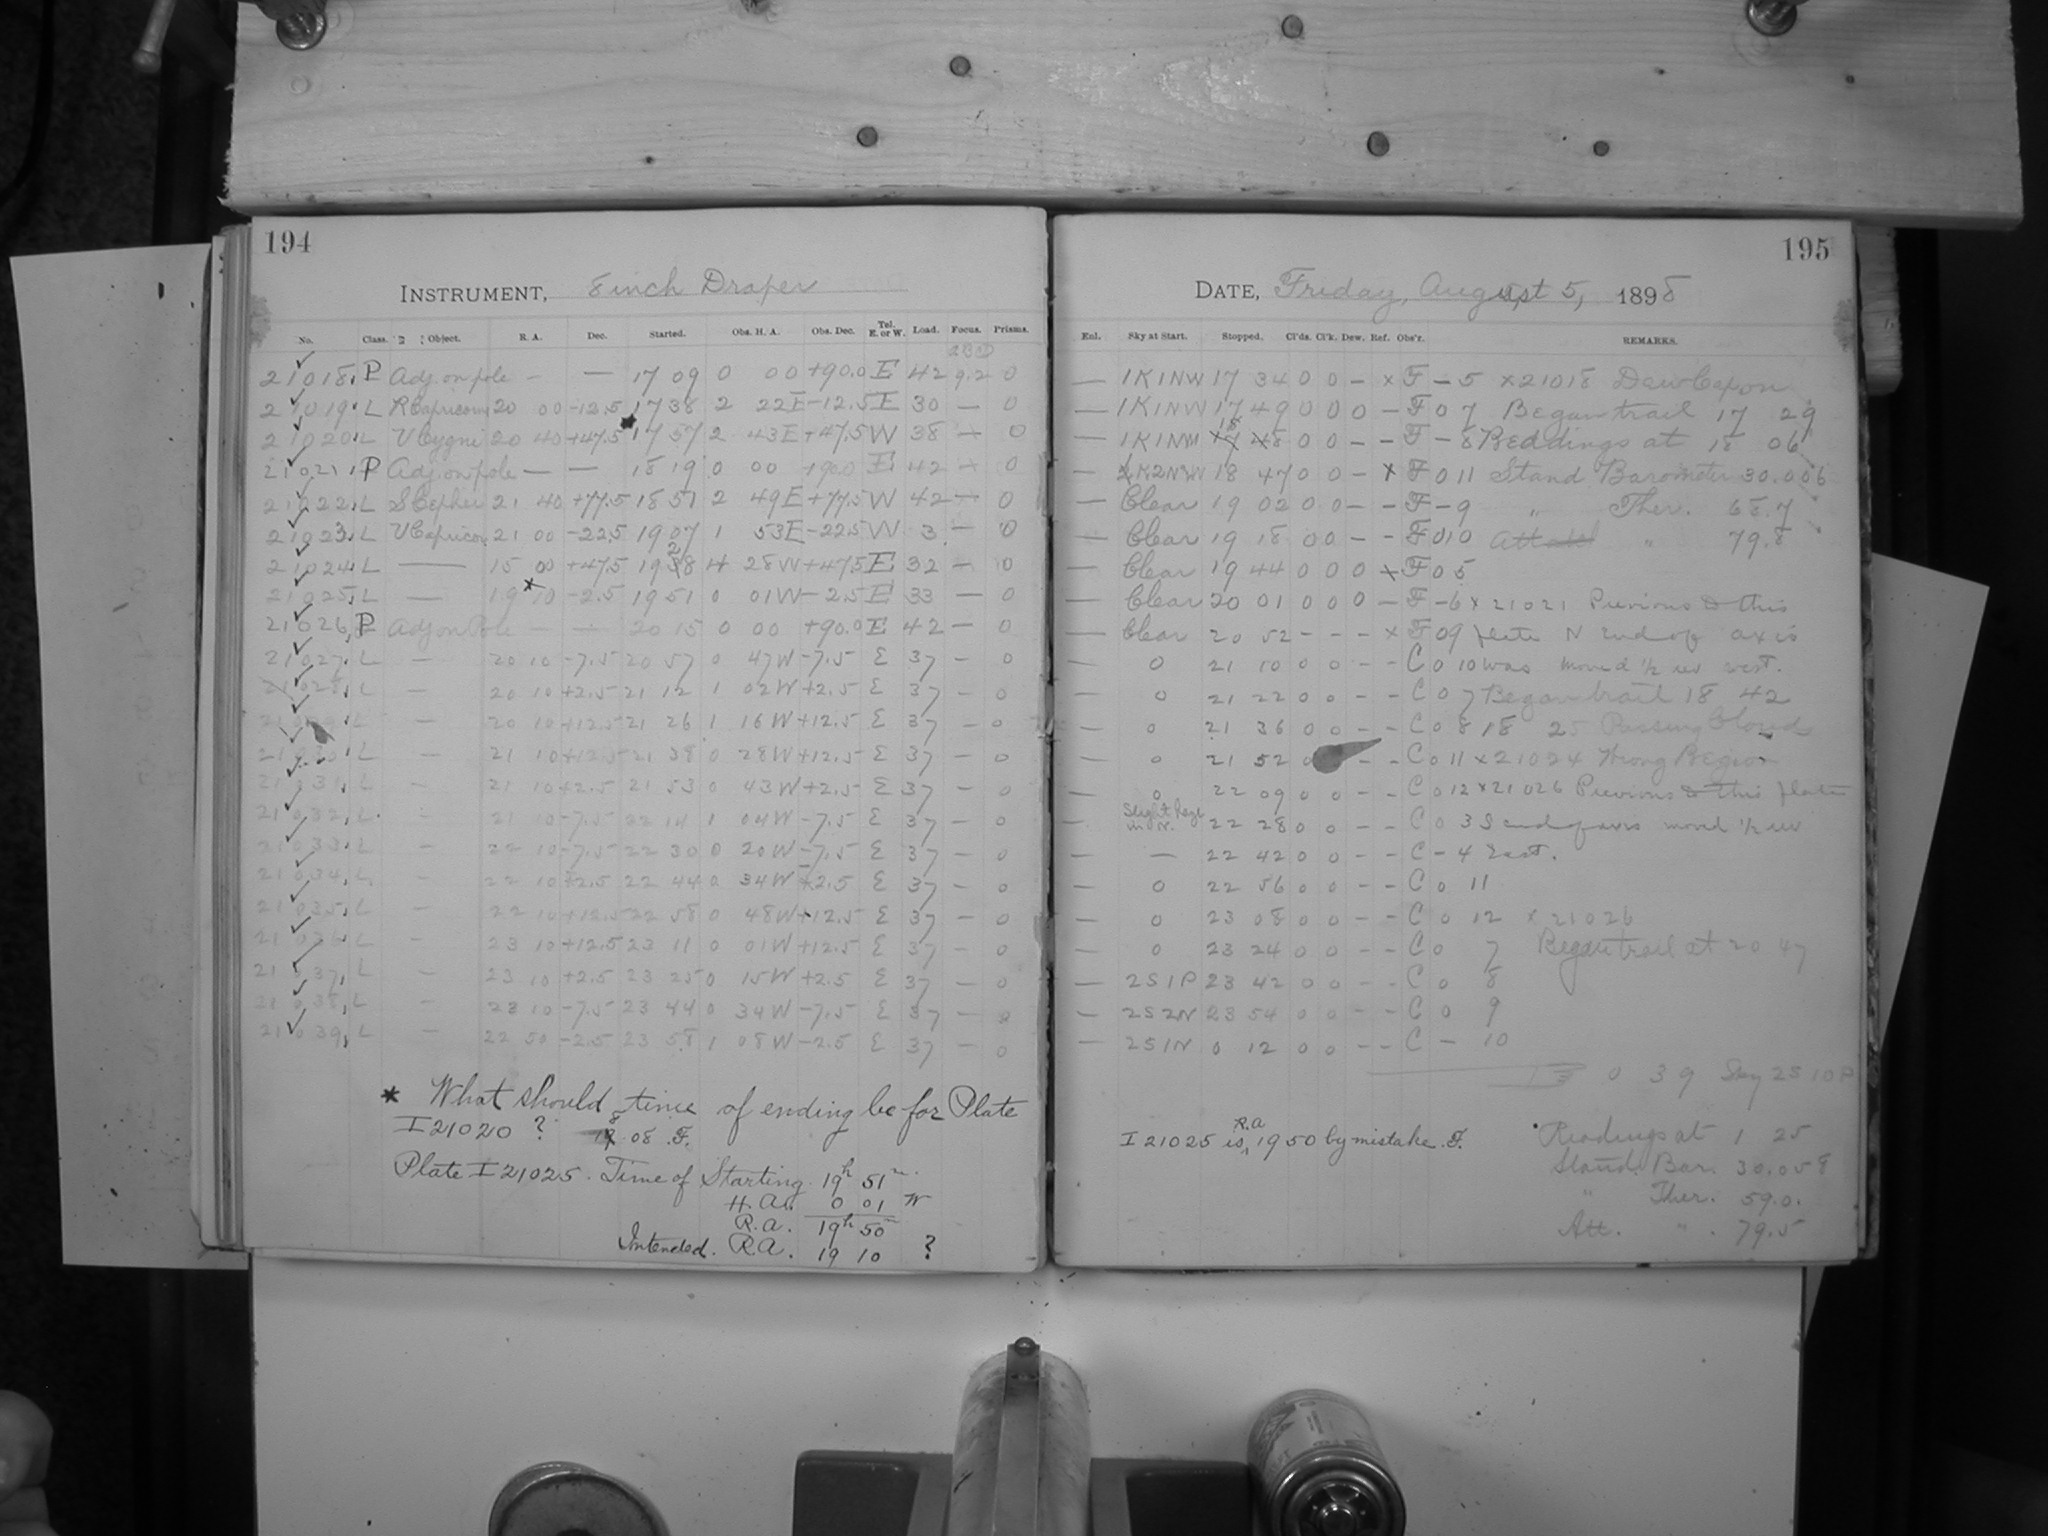 194
INSTRUMENT, 8 inch Draper
No. Class. Object. R. A. Dec. Started. Obs. H. A. Obs. Dec. Tel. E. or W. Load. Focus. Prisms.
21018. P Adj. on pole — — 17 09 0 00 +90.0 E 42 9.2 0
21019. L R Capricorni 20 00 -12.5 17 38 2 22E -12.5 E 30 — 0
21020. L V Cygni 20 40 +47.5 17 57 2 43E +47.5 W 38 — 0
21021. P Adj. on pole — — 18 19 0 00 +90.0 E 42 — 0
21022. L S Cephei 21 40 +77.5 18 51 2 49E +77.5 W 42 — 0
21023. L V Capricor 21 00 -22.5 19 07 1 53E -22.5 W 3 — 0
21024. L — 15 00 +47.5 19 28 4 28W +47.5 E 32 — 0
21025. L — 19 * 10 -2.5 19 51 0 01W -2.5 E 33 — 0
21026. P Adj on Pole — — 20 15 0 00 +90.0 E 42 — 0
21027. L — 20 10 -7.5 20 57 0 47W -7.5 E 37 — 0
21028. L — 20 10 +2.5 21 12 1 02W +2.5 E 37 — 0
21029. L — 20 10 +12.5 21 26 1 16W +12.5 E 37 — 0
21030. L — 21 10 +12.5 21 38 0 28W +12.5 E 37 — 0
21031. L — 21 10 +2.5 21 53 0 43W +2.5 E 37 — 0
21032. L — 21 10 -7.5 22 14 1 04W -7.5 E 37 — 0
21033. L — 22 10 -7.5 22 30 0 20W -7.5 E 37 — 0
21034. L — 22 10 +2.5 22 44 0 34W +2.5 E 37 — 0
21035. L — 22 10 +12.5 22 58 0 48W +12.5 E 37 — 0
21036. L — 23 10 +12.5 23 11 0 01W +12.5 E 37 — 0
21037. L — 23 10 +2.5 23 25 0 15W +2.5 E 37 — 0
21038. L — 23 10 -7.5 23 44 0 34W -7.5 E 37 — 0
21039. L — 22 50 -2.5 23 58 1 08W -2.5 E 37 — 0
* What should time of ending be for Plate
I 21020 ? 18 08 F.
Plate I 21025. Time of Starting 19h 51m.
H.A. 0 01 W
R.A. 19h 50m
Intended. R.A. 19 10 ?
195
DATE, Friday, August 5, 1898
Enl. Sky at Start. Stopped. Cl'ds. Cl'k. Dew. Ref. Obs'r. REMARKS.
— 1K1NW 17 34 0 0 — x F - 5 x 21018 Dew Cap on
— 1K1NW 17 49 0 0 0 — F 0 7 Began trail 17 29
— 1K1NW 18 48 0 0 - - F - 8 Readings at 18 06
— 2K2NW 18 47 0 0 - x F 0 11 Stand Barometer 30.006
— Clear 19 02 0 0 - - F - 9 " Ther. 68.7
— Clear 19 18 0 0 - - F 0 10 Att " 79.8
— Clear 19 44 0 0 0 x F 0 5
— Clear 20 01 0 0 0 - F - 6 x 21021 Previous to this
— Clear 20 52 - - - x F 0 9 plate N end of axis
— 0 21 10 0 0 - - C 0 10 was moved 1/2 rev west.
— 0 21 22 0 0 - - C 0 7 Began trail 18 42
— 0 21 36 0 0 - - C 0 8 18 25 Passing Cloud
— 0 21 52 0 - - C 0 11 x 21024 Wrong Region
— 0 22 09 0 0 - - C 0 12 x 21026 Previous to this plate
— Slight haze in N. 22 28 0 0 - - C 0 3 S end of axis moved 1/2 rev
— — 22 42 0 0 - - C - 4 East.
— 0 22 56 0 0 - - C 0 11
— 0 23 08 0 0 - - C 0 12 x 21026
— 0 23 24 0 0 - - C 0 7 Began trail at 20 47
— 2S1P 23 42 0 0 - - C 0 8
— 2S2N 23 54 0 0 - - C 0 9
— 2S1N 0 12 0 0 - - C - 10
0 39 Sky 2S 10P
I 21025 is R.A. 19 50 by mistake. F.
Readings at 1 25
Stand. Bar. 30.058
" Ther. 59.0.
Att. " . 79.5